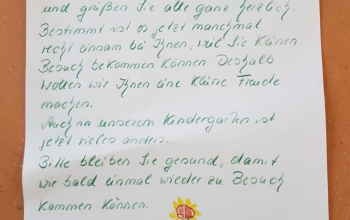 und grüßen Sie alle ganz herzlich.
Bestimmt ist es jetzt manchmal
recht einsam bei Ihnen, weil Sie keinen
Besuch bekommen können. Deshalb
wollen wir Ihnen eine kleine Freude
machen.
Auch in unserem Kindergarten ist
jetzt vieles anders.
Bitte bleiben Sie gesund, damit
wir bald einmal wieder zu Besuch
kommen können.